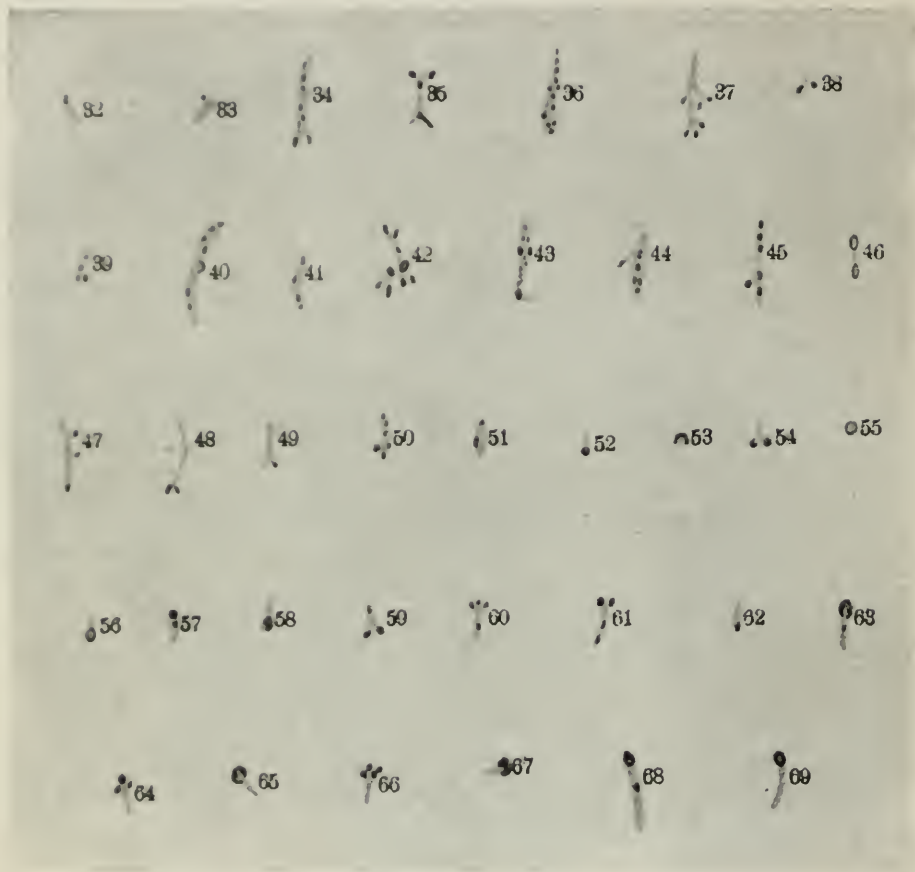 32 33 34 35 36 37 38
39 40 41 42 43 44 45 46
47 48 49 50 51 52 53 54 55
56 57 58 59 60 61 62 63
64 65 66 67 68 69